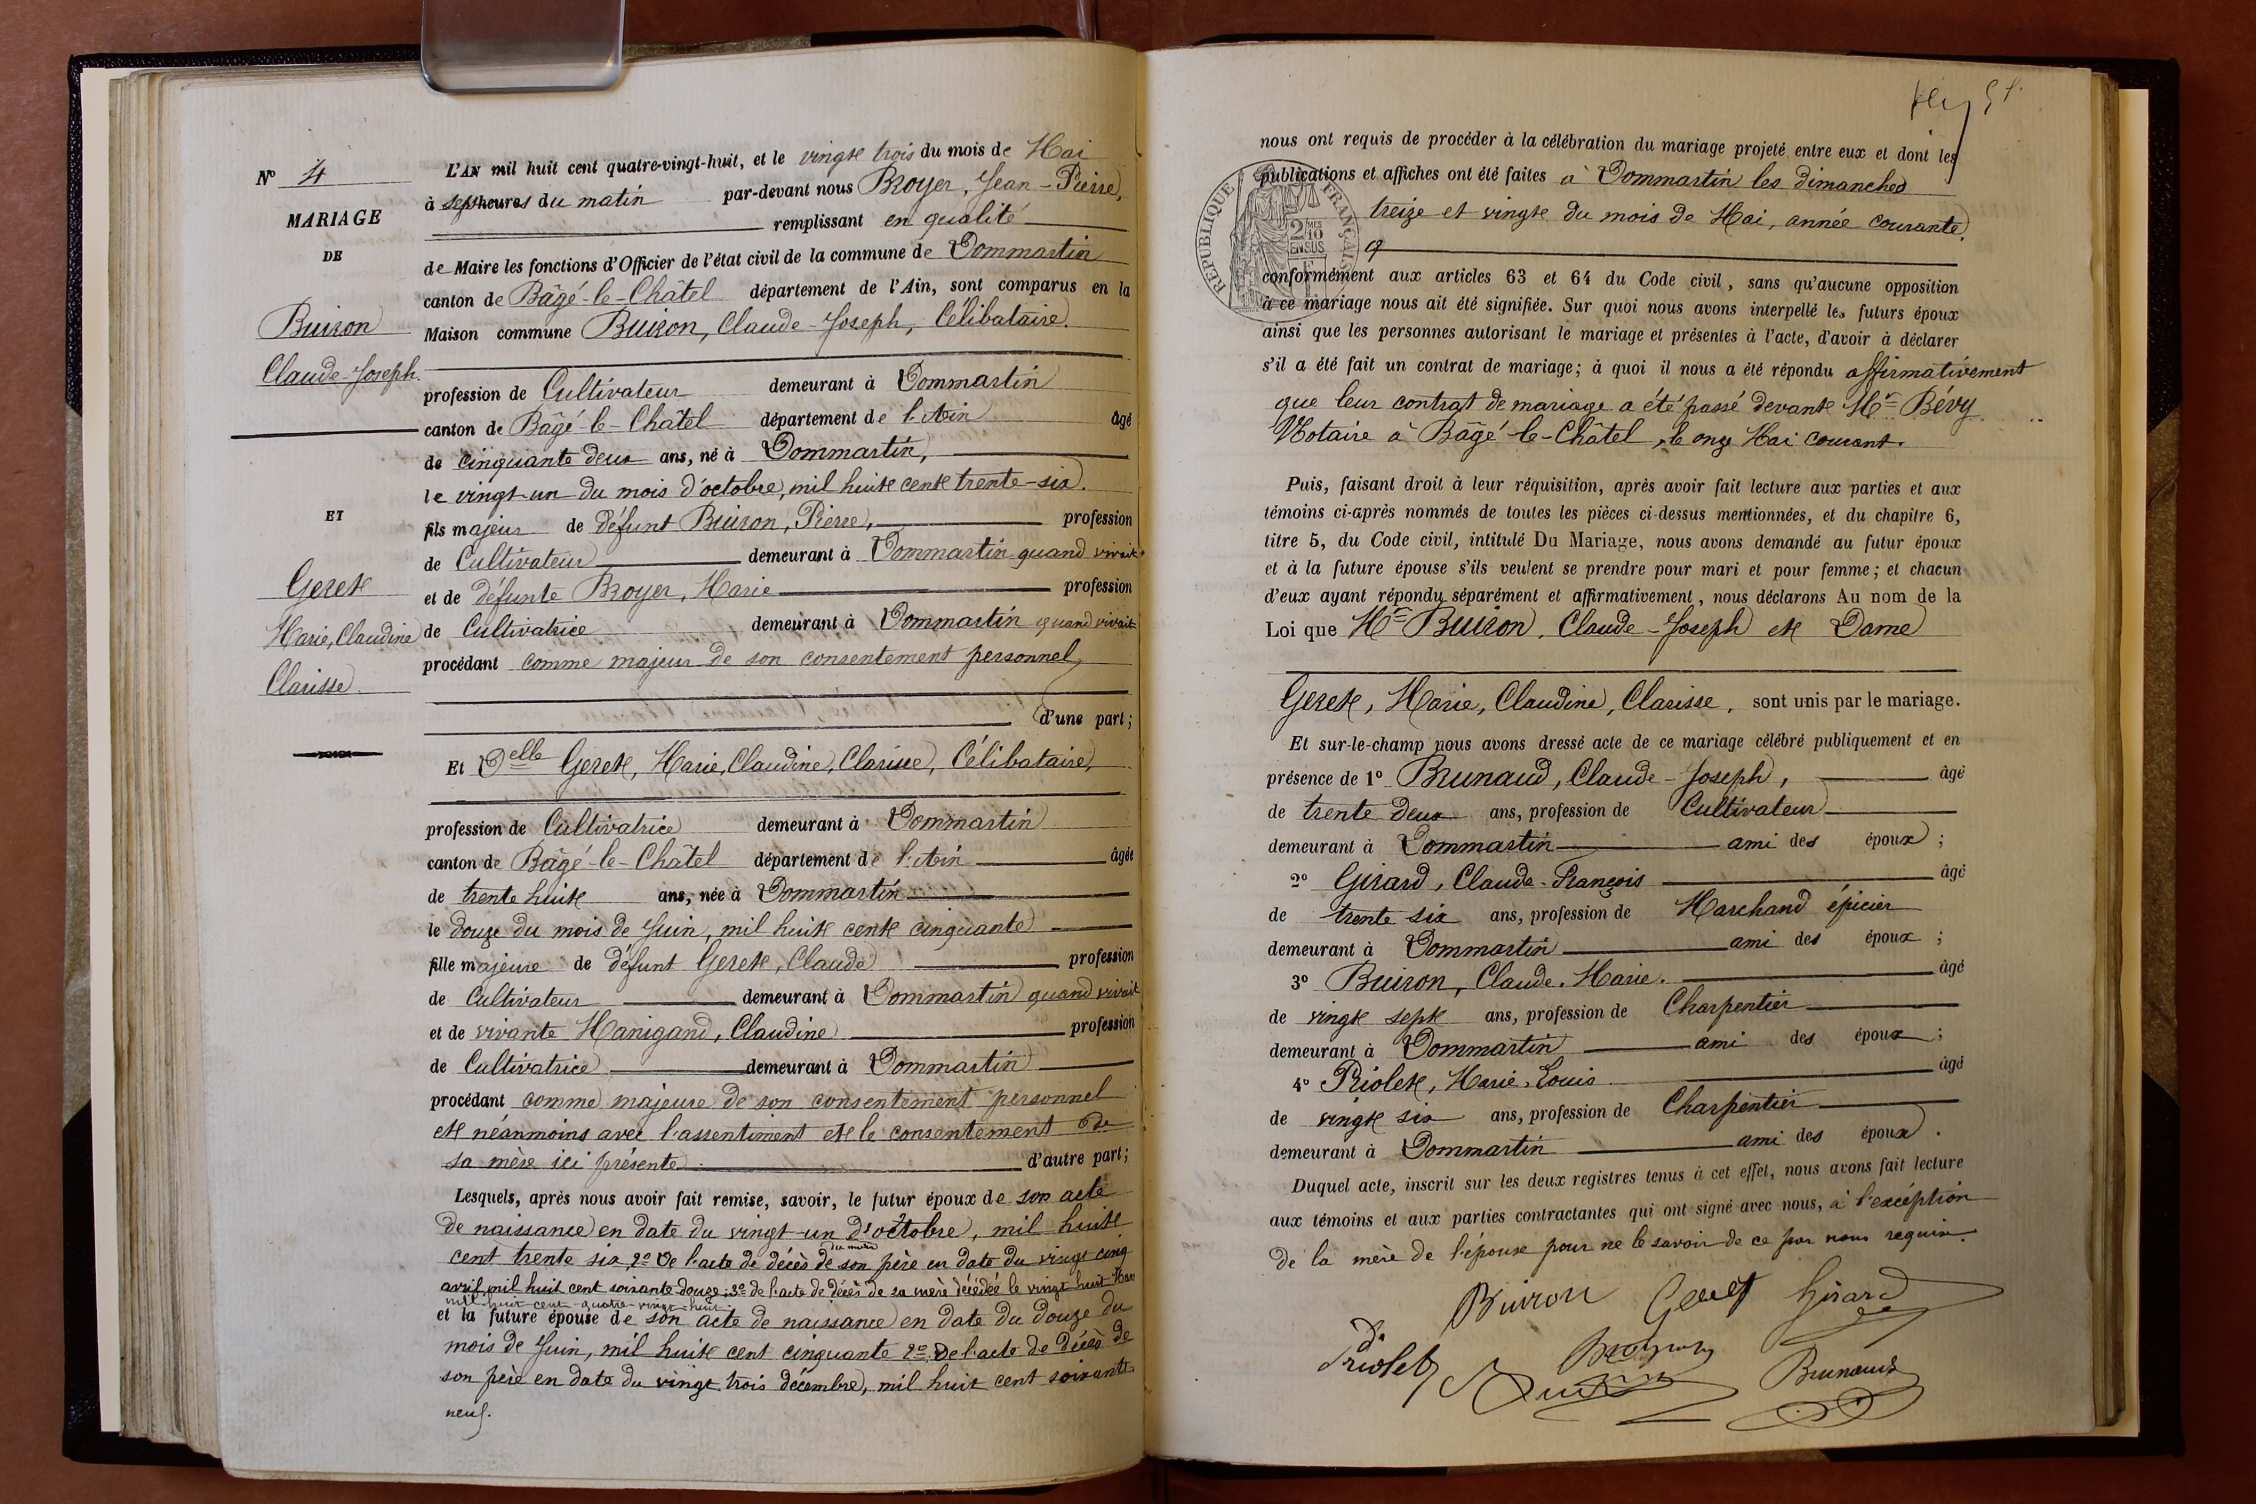 L'AN mil huit cent quatre-vingt-huit, et le vingt trois du mois de Mai
Nº 4
à sept heures du matin par-devant nous Broyer, Jean-Pierre,
MARIAGE
remplissant en qualité
DE
de Maire les fonctions d'Officier de l'état civil de la commune de Dommartin
canton de Bâgé-le-Châtel département de l'Ain, sont comparus en la
Buiron
Maison commune Buiron, Claude-Joseph, Célibataire.
Claude-Joseph.
profession de Cultivateur demeurant à Dommartin
canton de Bâgé-le-Châtel département de l'Ain âgé
de cinquante deux ans, né à Dommartin,
le vingt-un du mois d'octobre, mil huit cent trente-six.
ET
fils majeur de défunt Buiron, Pierre, profession
de Cultivateur demeurant à Dommartin quand vivait
Geret
et de défunte Broyer, Marie profession
Marie, Claudine
de Cultivatrice demeurant à Dommartin quand vivait
Clarisse
procédant comme majeur de son consentement personnel
d'une part;
Et Delle Geret, Marie, Claudine, Clarisse, Célibataire,
profession de Cultivatrice demeurant à Dommartin
canton de Bâgé-le-Châtel département de l'Ain âgée
de trente huit ans, née à Dommartin
le douze du mois de Juin, mil huit cent cinquante
fille majeure de défunt Geret, Claude profession
de Cultivateur demeurant à Dommartin quand vivait
et de vivante Manigand, Claudine profession
de Cultivatrice demeurant à Dommartin
procédant comme majeure de son consentement personnel
et néanmoins avec l'assentiment et le consentement de
sa mère ici présente. d'autre part;
Lesquels, après nous avoir fait remise, savoir, le futur époux de son acte
de naissance en date du vingt-un d'octobre, mil huit
cent trente six, 2º De l'acte de décès de son père en date du vingt cinq
avril mil huit cent soixante douze; 3º de l'acte de décès de sa mère décédée le vingt huit Mars
mil huit cent quatre-vingt-huit
et la future épouse de son acte de naissance en date du douze du
mois de Juin, mil huit cent cinquante 2º De l'acte de décès de
son père en date du vingt trois décembre, mil huit cent soixante
neuf.
nous ont requis de procéder à la célébration du mariage projeté entre eux et dont les
publications et affiches ont été faites à Dommartin les dimanches
treize et vingt du mois de Mai, année courante,
RÉPUBLIQUE FRANÇAISE
2 MES 10 EN SUS
conformément aux articles 63 et 64 du Code civil, sans qu'aucune opposition
à ce mariage nous ait été signifiée. Sur quoi nous avons interpellé les futurs époux
ainsi que les personnes autorisant le mariage et présentes à l'acte, d'avoir à déclarer
s'il a été fait un contrat de mariage; à quoi il nous a été répondu affirmativement
que leur contrat de mariage a été passé devant Me Bévy
Notaire à Bâgé-le-Châtel, le onze Mai courant.
Puis, faisant droit à leur réquisition, après avoir fait lecture aux parties et aux
témoins ci-après nommés de toutes les pièces ci-dessus mentionnées, et du chapitre 6,
titre 5, du Code civil, intitulé Du Mariage, nous avons demandé au futur époux
et à la future épouse s'ils veulent se prendre pour mari et pour femme; et chacun
d'eux ayant répondu séparément et affirmativement, nous déclarons Au nom de la
Loi que Mr Buiron, Claude-Joseph et Dame
Geret, Marie, Claudine, Clarisse, sont unis par le mariage.
Et sur-le-champ nous avons dressé acte de ce mariage célébré publiquement et en
présence de 1º Brunaud, Claude-Joseph, âgé
de trente deux ans, profession de Cultivateur
demeurant à Dommartin ami des époux;
2º Girard, Claude-François âgé
de trente six ans, profession de Marchand épicier
demeurant à Dommartin ami des époux;
3º Buiron, Claude-Marie. âgé
de vingt sept ans, profession de Charpentier
demeurant à Dommartin ami des époux;
4º Priolet, Marie-Louis âgé
de vingt six ans, profession de Charpentier
demeurant à Dommartin ami des époux.
Duquel acte, inscrit sur les deux registres tenus à cet effet, nous avons fait lecture
aux témoins et aux parties contractantes qui ont signé avec nous, à l'exception
de la mère de l'épouse pour ne le savoir de ce par nous requise.
Buiron Geret Girard
Priolet Buiron Broyer Brunaud